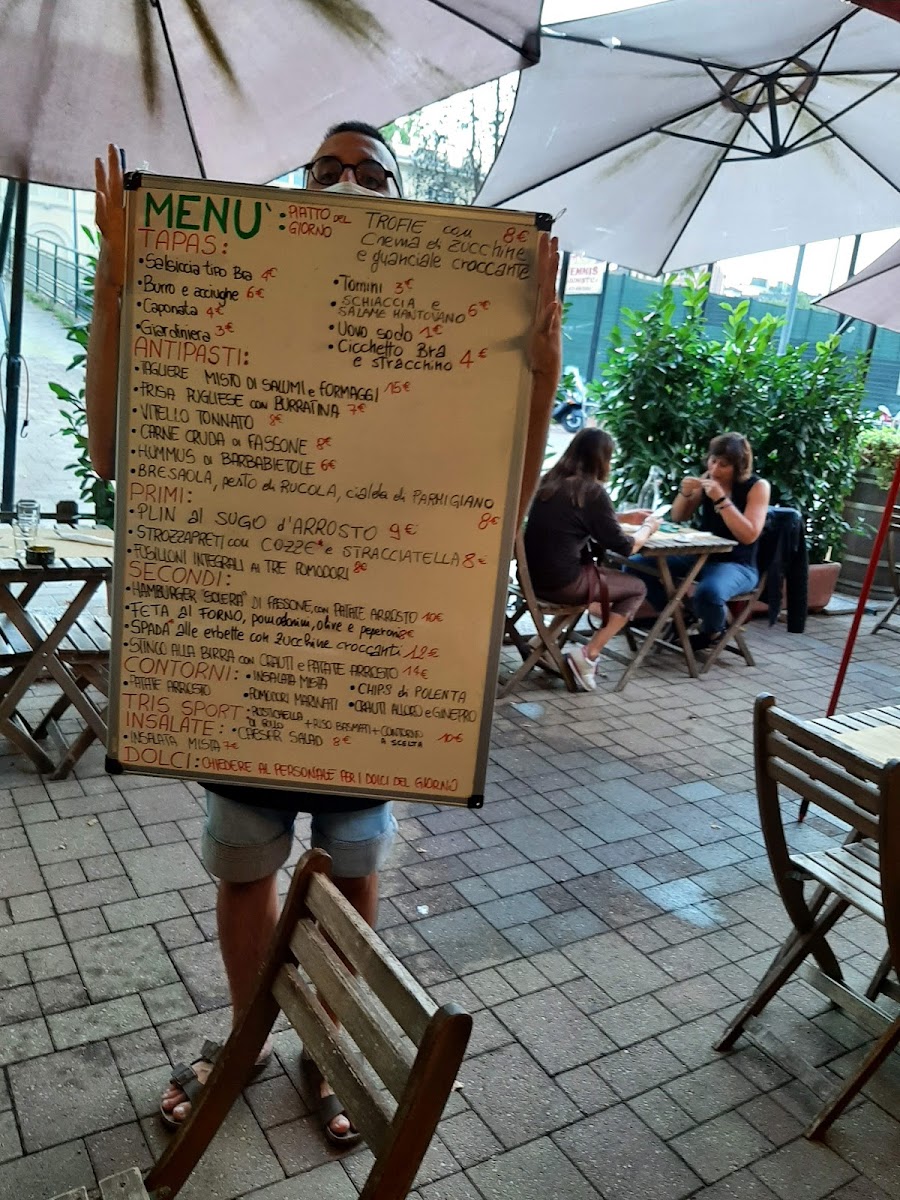 MENU':
• PIATTO DEL
GIORNO
TROFIE con 8€
crema di zucchine
e guanciale croccante
TAPAS:
• Salsiccia tipo Bra 4€
• Burro e acciughe 6€
• Caponata 4€
• Giardiniera 3€
• Tomini 3€
• SCHIACCIA e
SALAME MANTOVANO 6€
• Uovo sodo 1€
• Cicchetto BRA
e stracchino 4€
ANTIPASTI:
• TAGLIERE MISTO DI SALUMI e FORMAGGI 15€
• FRISA PUGLIESE con BURRATINA 7€
• VITELLO TONNATO 8€
• CARNE CRUDA DI FASSONE 8€
• HUMMUS DI BARBABIETOLE 6€
• BRESAOLA, pesto di RUCOLA, cialda di PARMIGIANO 8€
PRIMI:
• PLIN al SUGO d'ARROSTO 9€
• STROZZAPRETI con COZZE* e STRACCIATELLA 8€
• FUSILLONI INTEGRALI AI TRE POMODORI 8€
SECONDI:
• HAMBURGER "SOLERA" DI FASSONE, con PATATE ARROSTO 10€
• FETA al FORNO, pomodorini, olive e peperoni 8€
• SPADA* alle erbette con zucchine croccanti 12€
• STINCO ALLA BIRRA con CRAUTI e PATATE ARROSTO 14€
CONTORNI:
• PATATE ARROSTO
• INSALATA MISTA
• POMODORI MARINATI
• CHIPS di POLENTA
• CRAUTI ALLORO e GINEPRO
TRIS SPORT:
DI POLLO + RISO BASMATI + CONTORNO
A SCELTA 10€
INSALATE:
• INSALATA MISTA 7€
• CAESER SALAD 8€
DOLCI: CHIEDERE AL PERSONALE PER I DOLCI DEL GIORNO
TENNIS